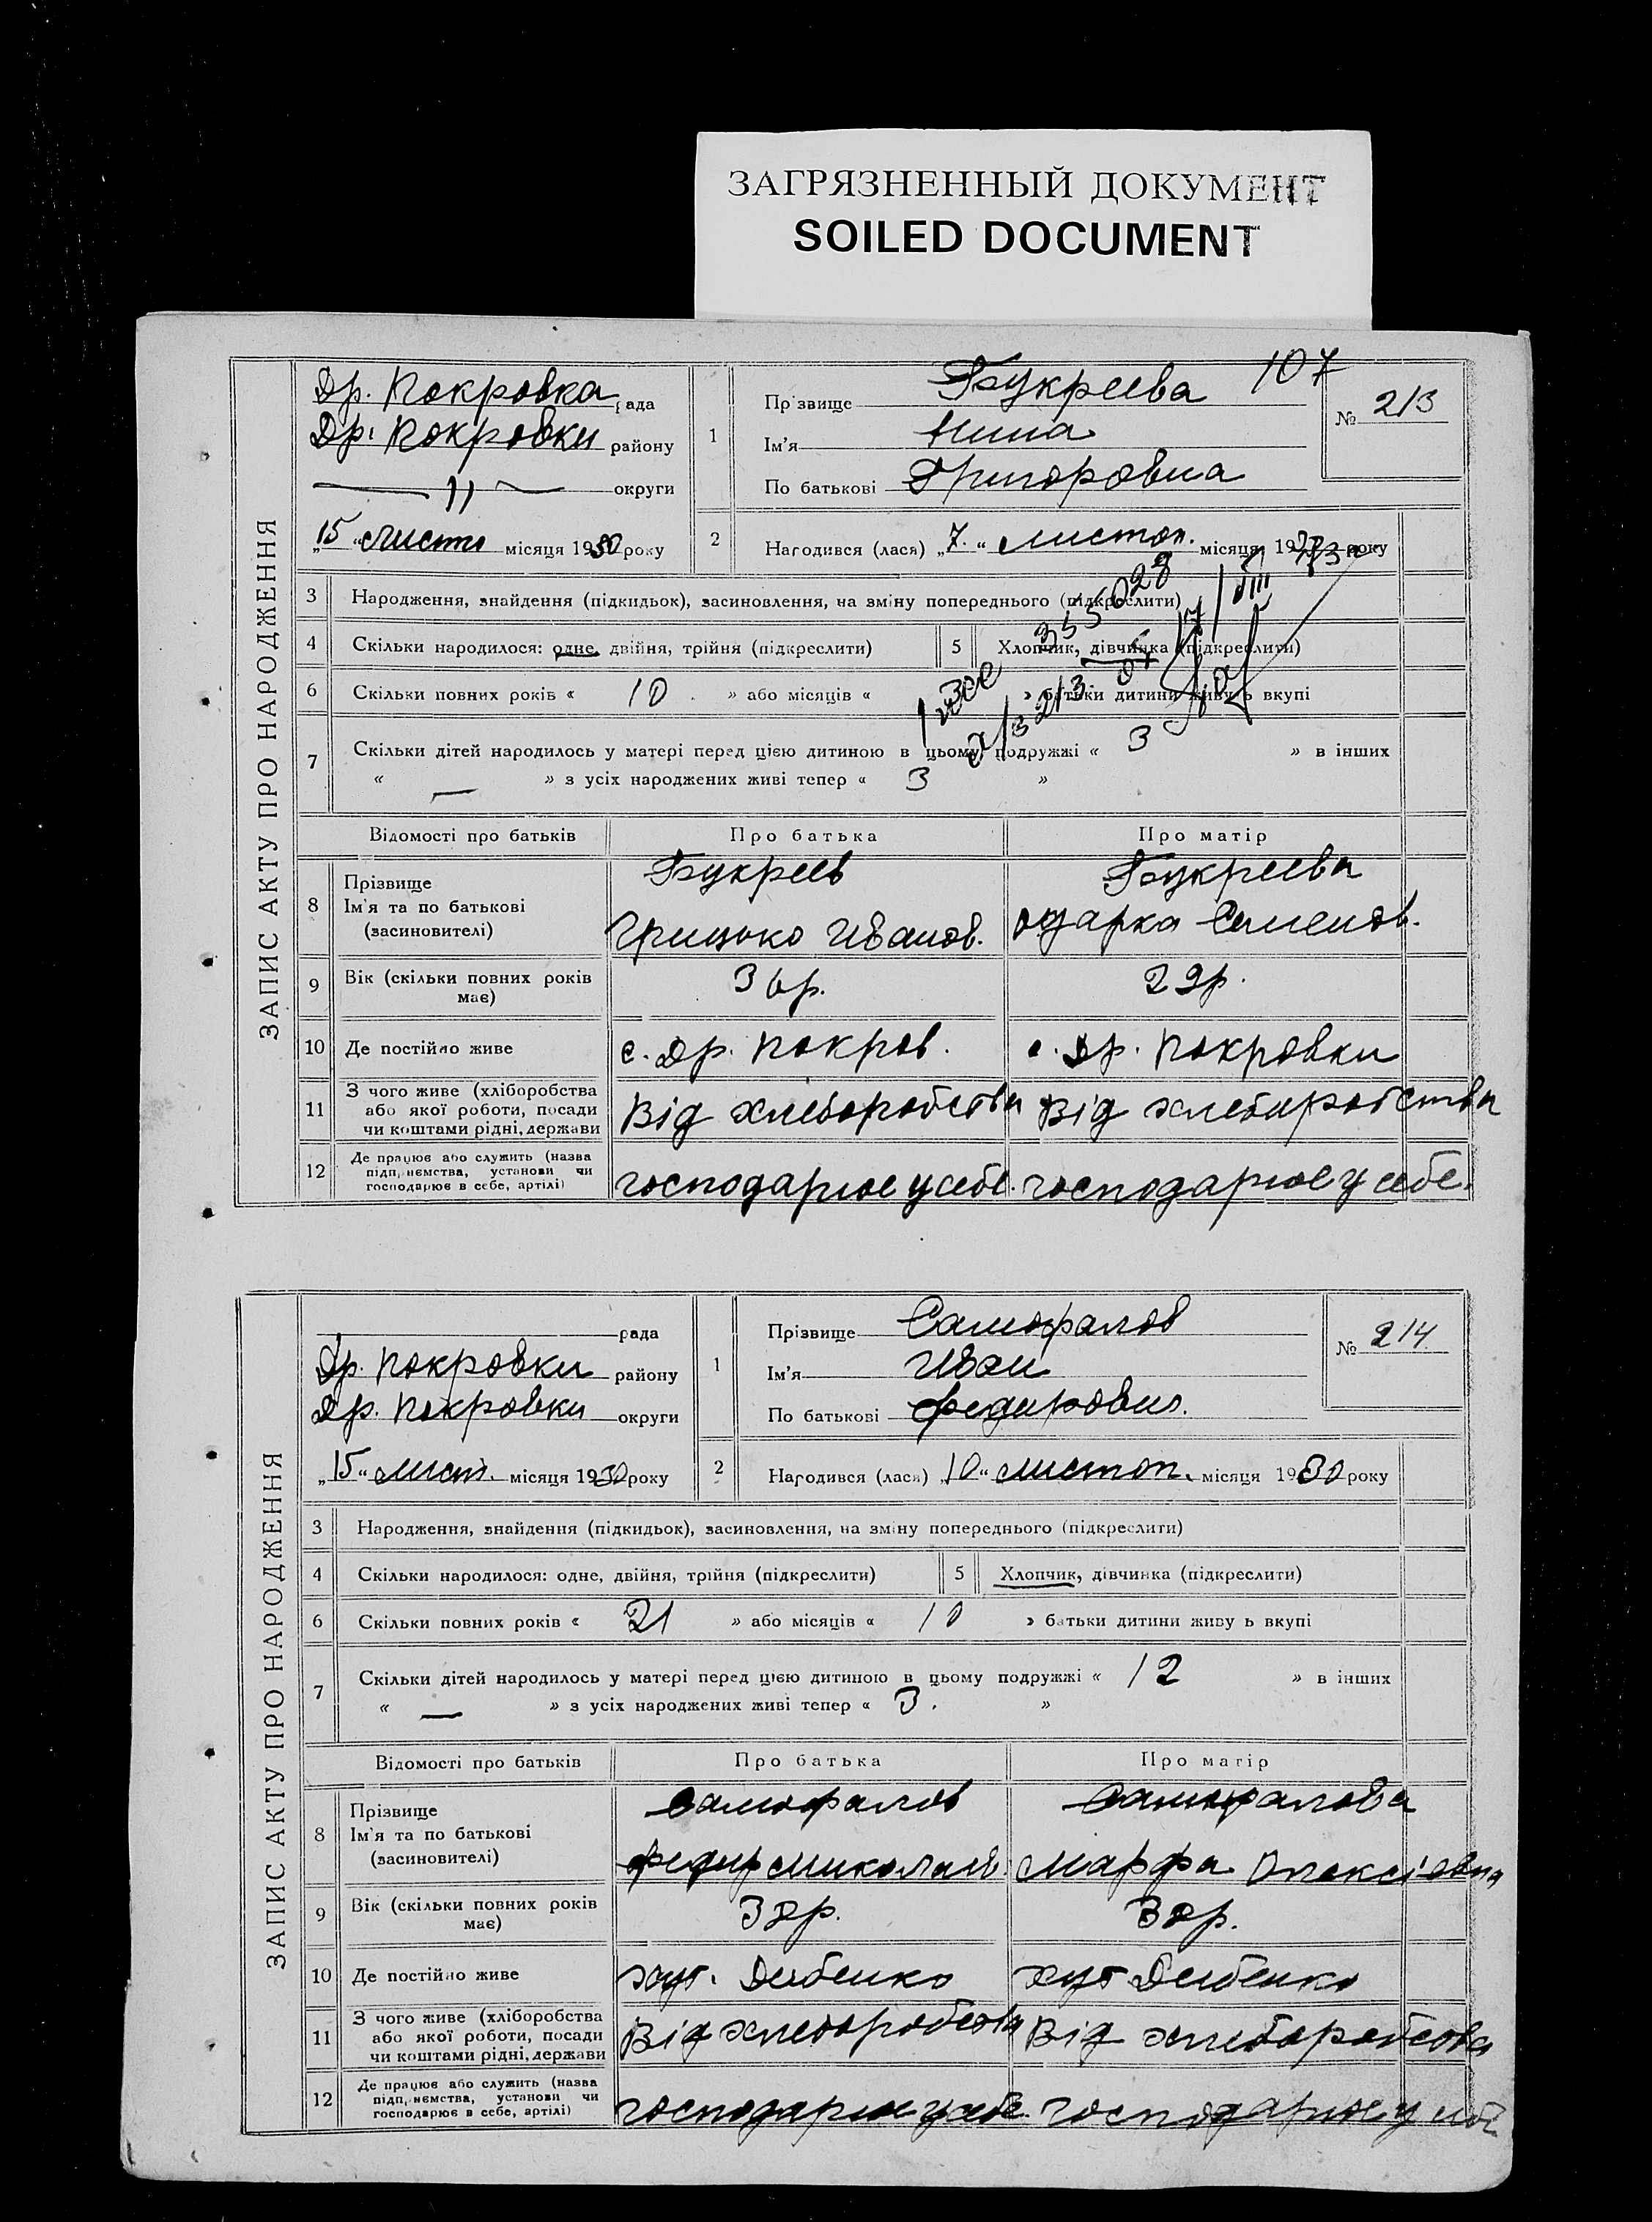 ЗАГРЯЗНЕННЫЙ ДОКУМЕНТ
SOILED DOCUMENT
107
ЗАПИС АКТУ ПРО НАРОДЖЕННЯ
Др. Покровка рада
Др. Покровки району
— " — округи
„15“ Листп місяця 1930 року
1 Прізвище Букреева
Ім'я Нина
По батькові Григоровна
№ 213
2 Народився (лася) „7.“ листоп. місяця 19 року
3 Народження, знайдення (підкидьок), засиновлення, на зміну попереднього (підкреслити)
4 Скільки народилося: одне, двійня, трійня (підкреслити) 5 Хлопчик, дівчинка (підкреслити)
6 Скільки повних років « 10 » або місяців « » батьки дитини живуть вкупі
355028
7 Скільки дітей народилось у матері перед цією дитиною в цьому подружжі « 3 » в інших
« — » з усіх народжених живі тепер « 3 »
Відомості про батьків Про батька Про матір
8 Прізвище Ім'я та по батькові (засиновителі)
Букреев Букреева
Грицько Иванов. Одарка Семенов.
9 Вік (скільки повних років має) 36р. 29р.
10 Де постійно живе с. Др. Покров. с. Др. Покровки
11 З чого живе (хліборобства або якої роботи, посади чи коштами рідні, держави
Від хлеборобства Від хлеборобства
12 Де працює або служить (назва підприємства, установи чи господарює в себе, артілі)
господарює у себе. господарює у себе.
ЗАПИС АКТУ ПРО НАРОДЖЕННЯ
рада
Др. Покровки району
Др. Покровки округи
„15“ лист. місяця 1930 року
1 Прізвище Самофалов
Ім'я Иван
По батькові Федирович.
№ 214
2 Народився (лася) „10“ листоп. місяця 1930 року
3 Народження, знайдення (підкидьок), засиновлення, на зміну попереднього (підкреслити)
4 Скільки народилося: одне, двійня, трійня (підкреслити) 5 Хлопчик, дівчинка (підкреслити)
6 Скільки повних років « 21 » або місяців « 10 » батьки дитини живуть вкупі
7 Скільки дітей народилось у матері перед цією дитиною в цьому подружжі « 12 » в інших
« — » з усіх народжених живі тепер « 3. »
Відомості про батьків Про батька Про матір
8 Прізвище Ім'я та по батькові (засиновителі)
Самофалов Самофалова
Федир Миколай. Марфа Олексіевна
9 Вік (скільки повних років має)
10 Де постійно живе хут. Дейбенко хут Дейбенко
11 З чого живе (хліборобства або якої роботи, посади чи коштами рідні, держави
Від хлеборобства Від хлеборобства
12 Де працює або служить (назва підприємства, установи чи господарює в себе, артілі)
господарює у себе. господарює у себе